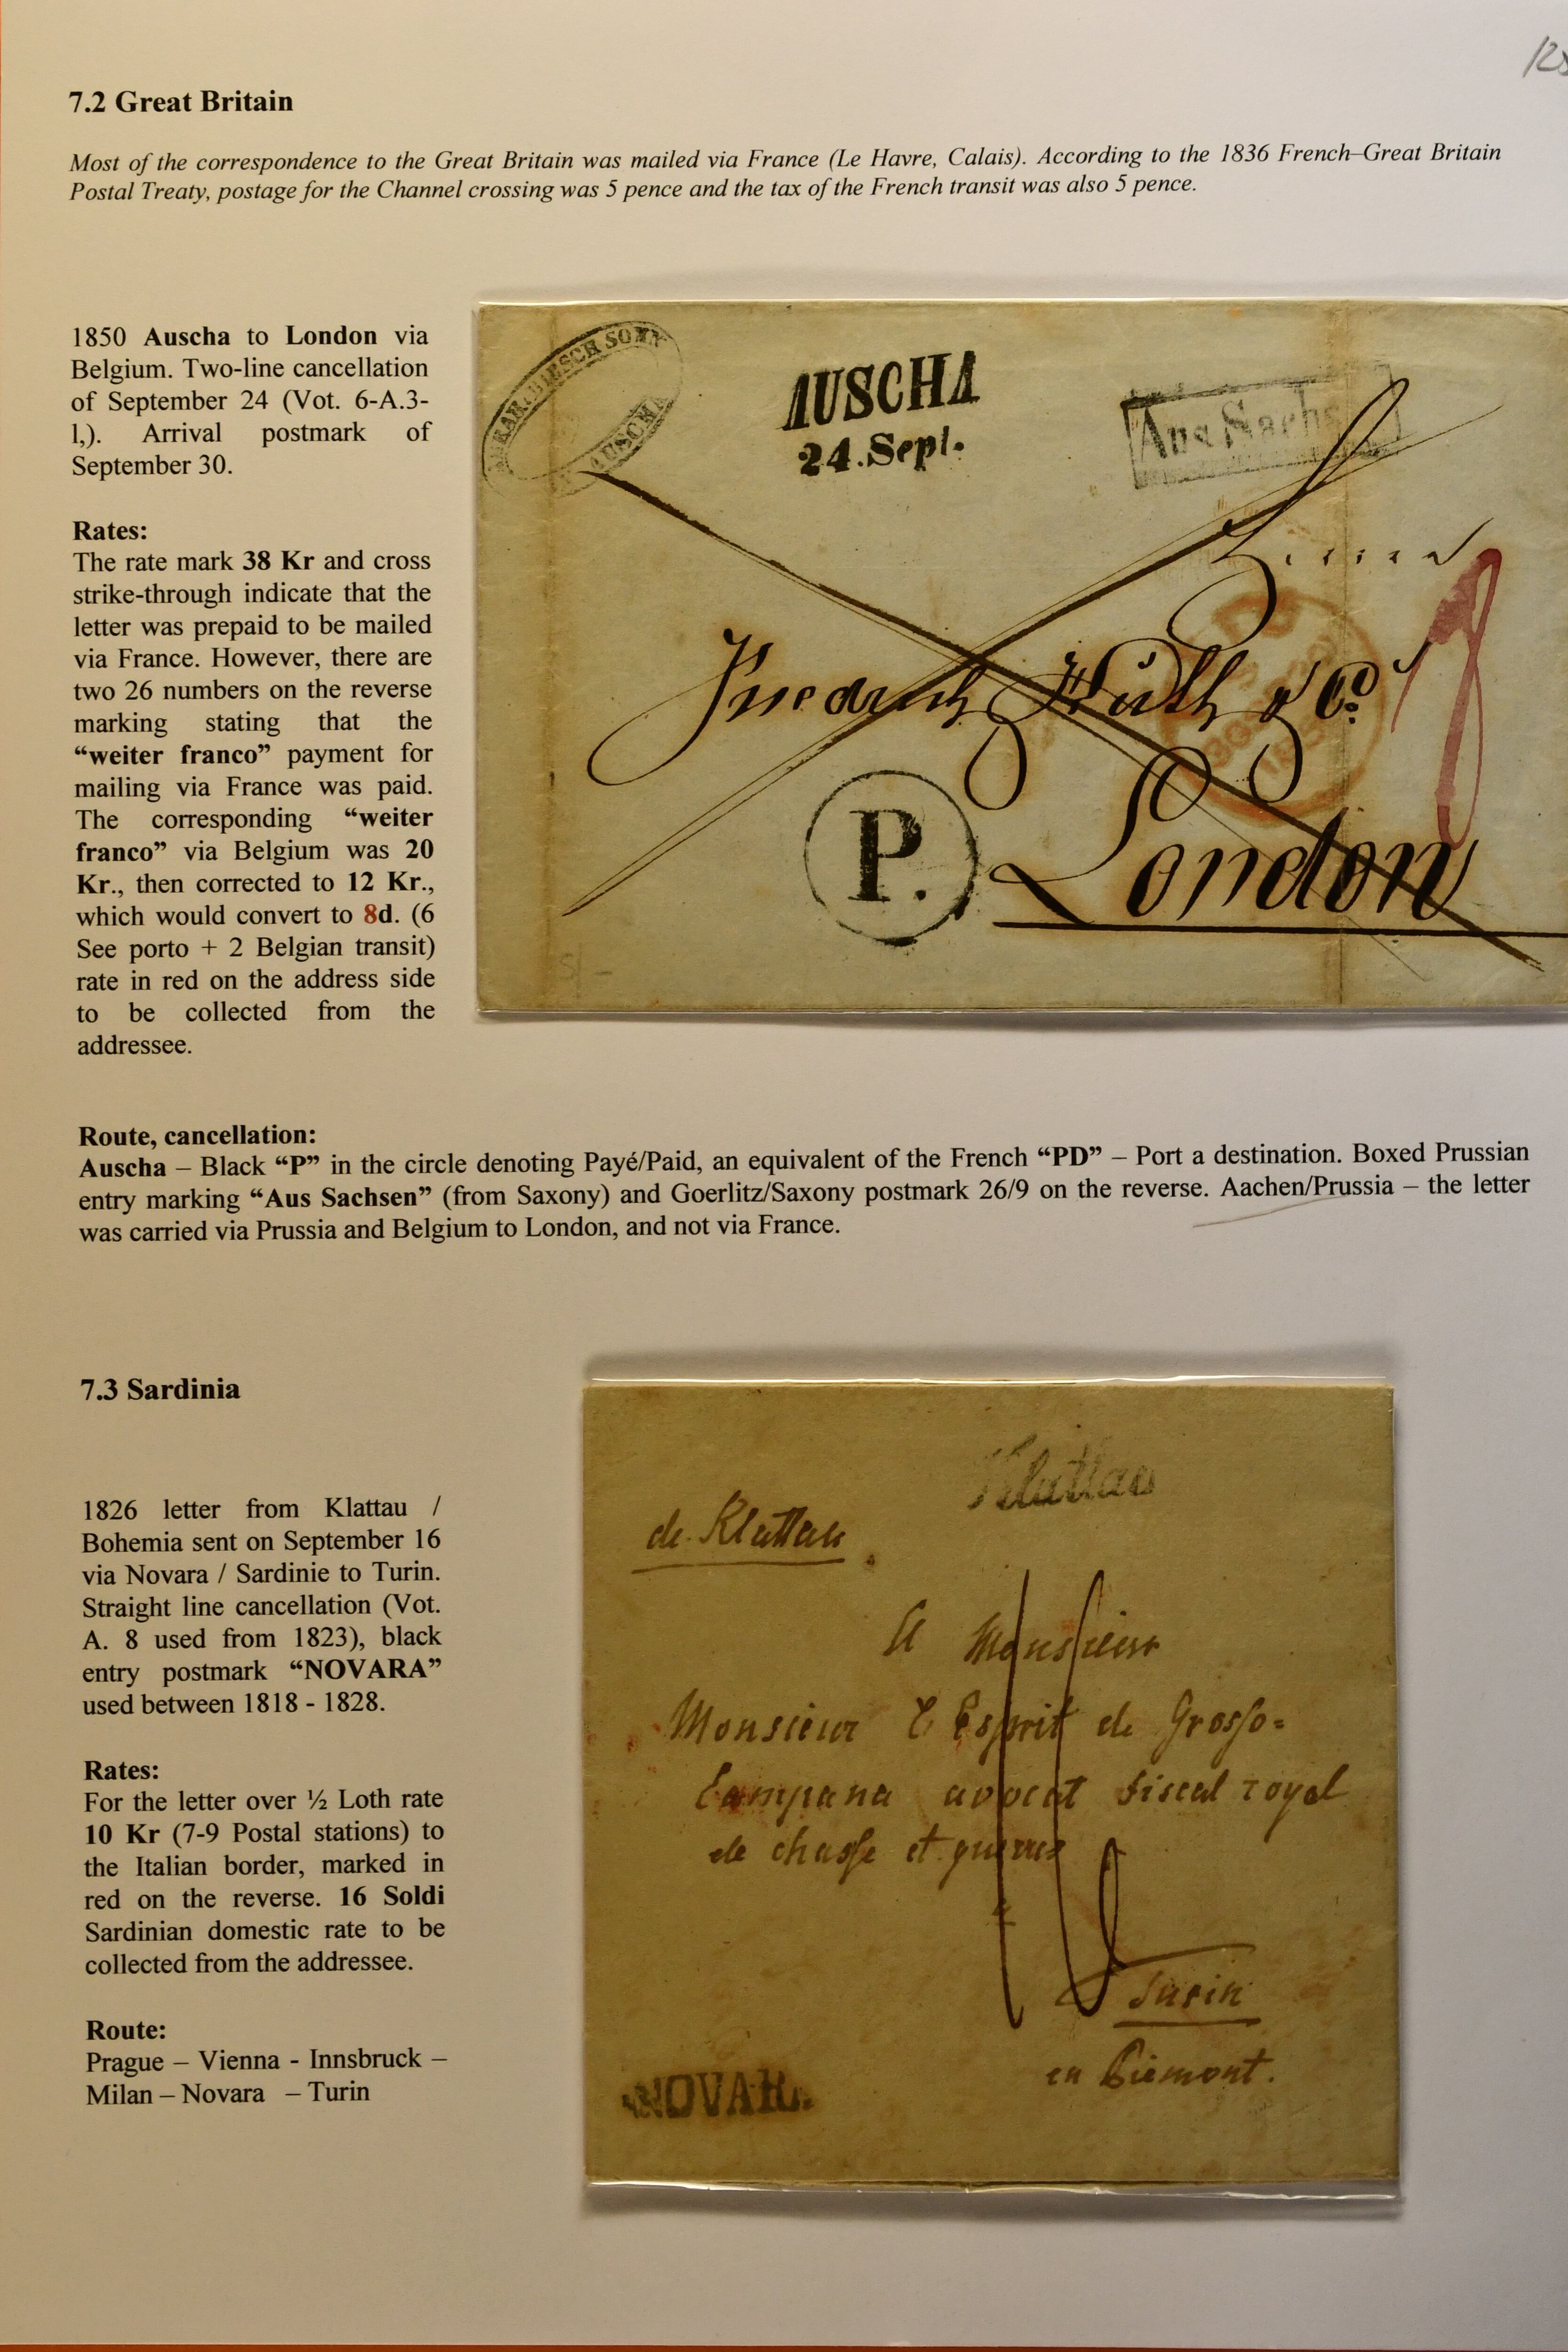 7.2 Great Britain
Most of the correspondence to the Great Britain was mailed via France (Le Havre, Calais). According to the 1836 French–Great Britain
Postal Treaty, postage for the Channel crossing was 5 pence and the tax of the French transit was also 5 pence.
1850 Auscha to London via
Belgium. Two-line cancellation
of September 24 (Vot. 6-A.3-
l,). Arrival postmark of
September 30.
Rates:
The rate mark 38 Kr and cross
strike-through indicate that the
letter was prepaid to be mailed
via France. However, there are
two 26 numbers on the reverse
marking stating that the
“weiter franco” payment for
mailing via France was paid.
The corresponding “weiter
franco” via Belgium was 20
Kr., then corrected to 12 Kr.,
which would convert to 8d. (6
See porto + 2 Belgian transit)
rate in red on the address side
to be collected from the
addressee.
SOHN
AUSCHA
AUSCHA
24.Sept.
Aus Sachs
Friedrich Huth & Co.
P.
London
Route, cancellation:
Auscha – Black “P” in the circle denoting Payé/Paid, an equivalent of the French “PD” – Port a destination. Boxed Prussian
entry marking “Aus Sachsen” (from Saxony) and Goerlitz/Saxony postmark 26/9 on the reverse. Aachen/Prussia – the letter
was carried via Prussia and Belgium to London, and not via France.
7.3 Sardinia
1826 letter from Klattau /
Bohemia sent on September 16
via Novara / Sardinie to Turin.
Straight line cancellation (Vot.
A. 8 used from 1823), black
entry postmark “NOVARA”
used between 1818 - 1828.
Rates:
For the letter over ½ Loth rate
10 Kr (7-9 Postal stations) to
the Italian border, marked in
red on the reverse. 16 Soldi
Sardinian domestic rate to be
collected from the addressee.
Route:
Prague – Vienna - Innsbruck –
Milan – Novara – Turin
Klattau
de Klattau
A Monsieur
Monsieur l'Esprit de Grosso=
Campana avocat fiscal royal
de chasse et guerres
Turin
en Piemont.
NOVAR